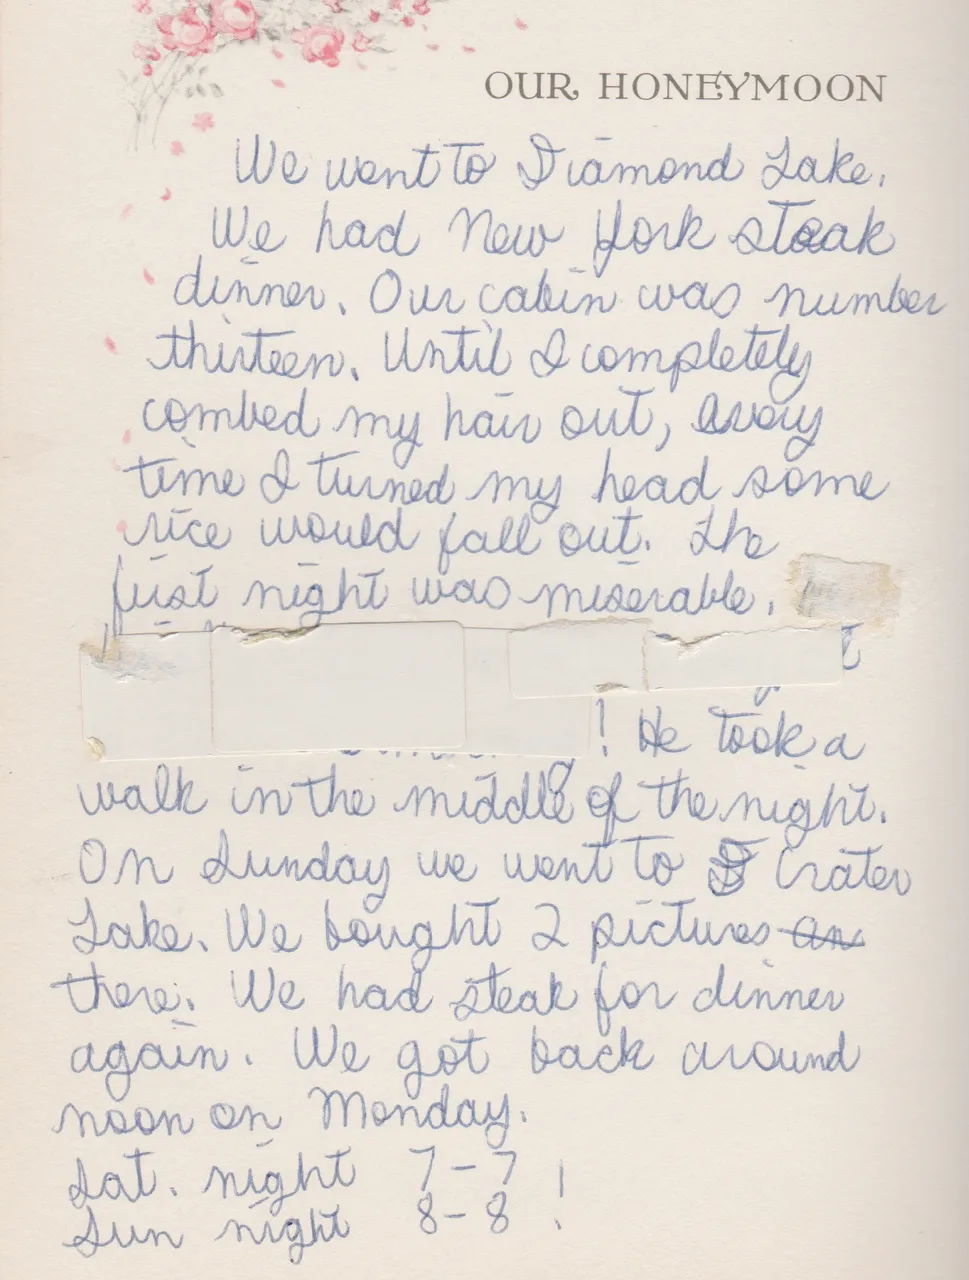 OUR HONEYMOON
We went to Diamond Lake.
We had New York steak
dinner. Our cabin was number
thirteen. Until I completely
combed my hair out, every
time I turned my head some
rice would fall out. The
first night was miserable.
! He took a
walk in the middle of the night.
On Sunday we went to Crater
Lake. We bought 2 pictures an
there. We had steak for dinner
again. We got back around
noon on Monday.
Sat. night 7-7
Sun night 8-8 !